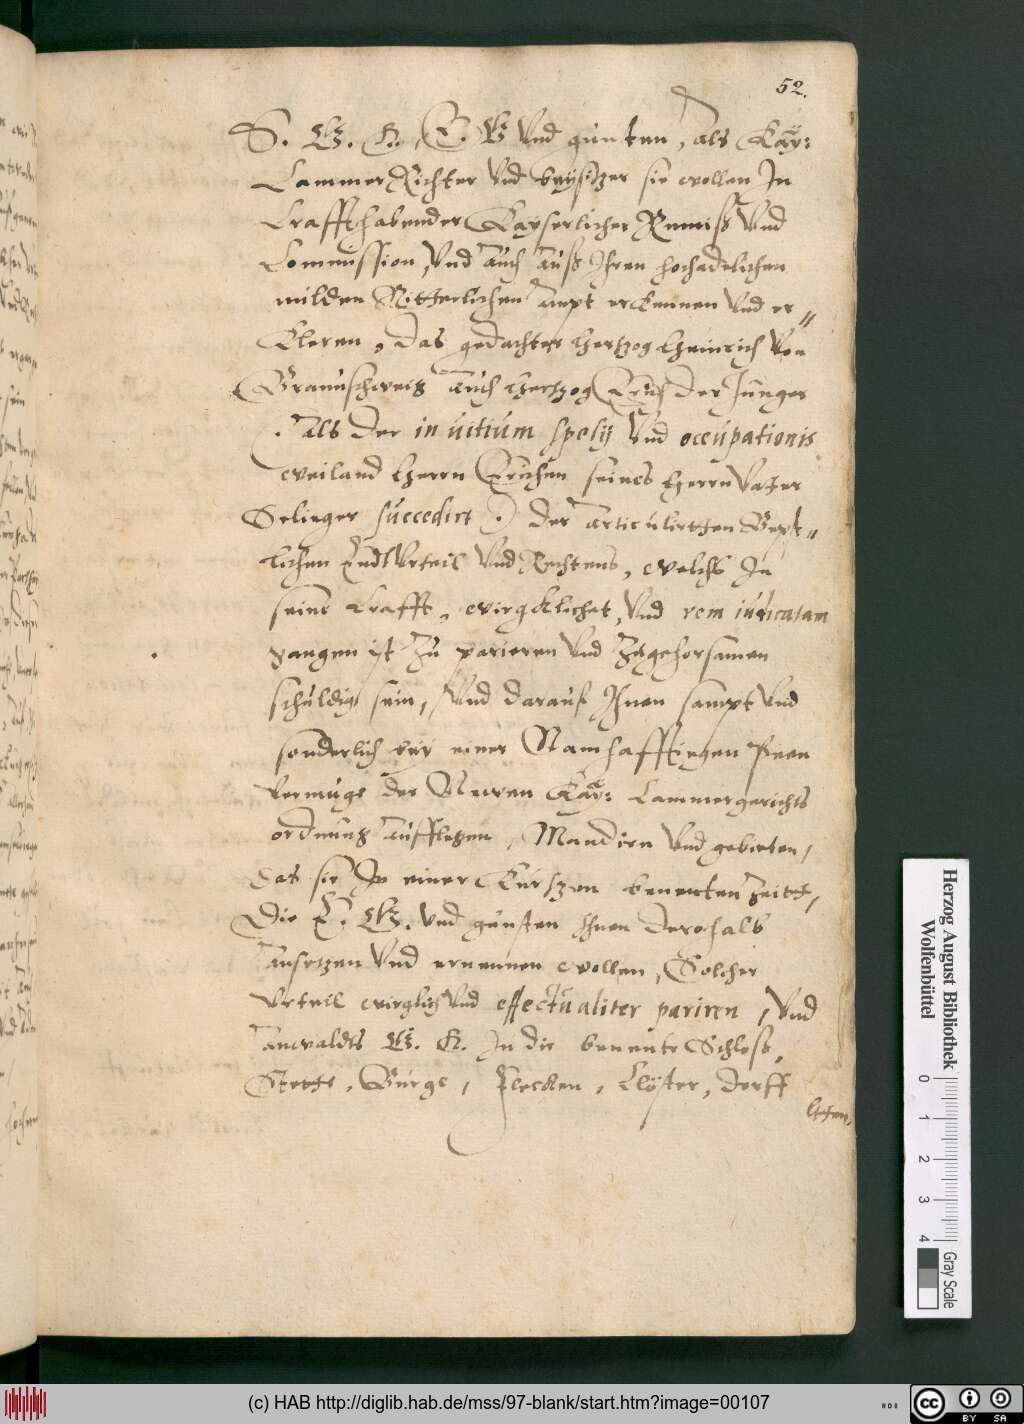 52.
S. Ch. H., E. Ch. und günsten, als Kay:
CammerRichter und beysitzer sie wollen In
Craffthabender Kayserlicher Remiss und
Commission, und auch auß Ihren hochadelichen
milden Ritterlichen ampt erkennen und er„
Cleren, Das gedachter Hertzog Heinrich von
Braunschweig auch Hertzog Erich der Junger
(. als der in uitium spolij und occupationis
weiland Herrn Erichen seines Herrn Vater
Seliger succedirt .) der articulirtten Bepst„
lichen Endt Urteil und Rechtens, welchs In
seine Crafft, wirgklichet, und rem iudicatam
gangen ist zu parieren und zugehorsamen
schuldig sein, Und darauf Ihnen sampt und
sonderlich bei einer Namhafftigen Peen
vermuge der Newen Kay: Cammergerichts
ordnung aufflegen, Mandirn und gebieten,
das sie In einer Kurtzen benenten Zeitt,
Die E. Ch. und günsten Ihnen derohalb
ansetzen und ernennen wollen, Solcher
Urteil wirglich und effectualiter pariren, und
anwaldts Ch. H. In die benente Schloß,
Stette, Burge, Flecken, Clöster, Dorff
(c) HAB http://diglib.hab.de/mss/97-blank/start.htm?image=00107
Herzog August Bibliothek
Wolfenbüttel
0 1 2 3 4
Gray Scale
CC BY SA